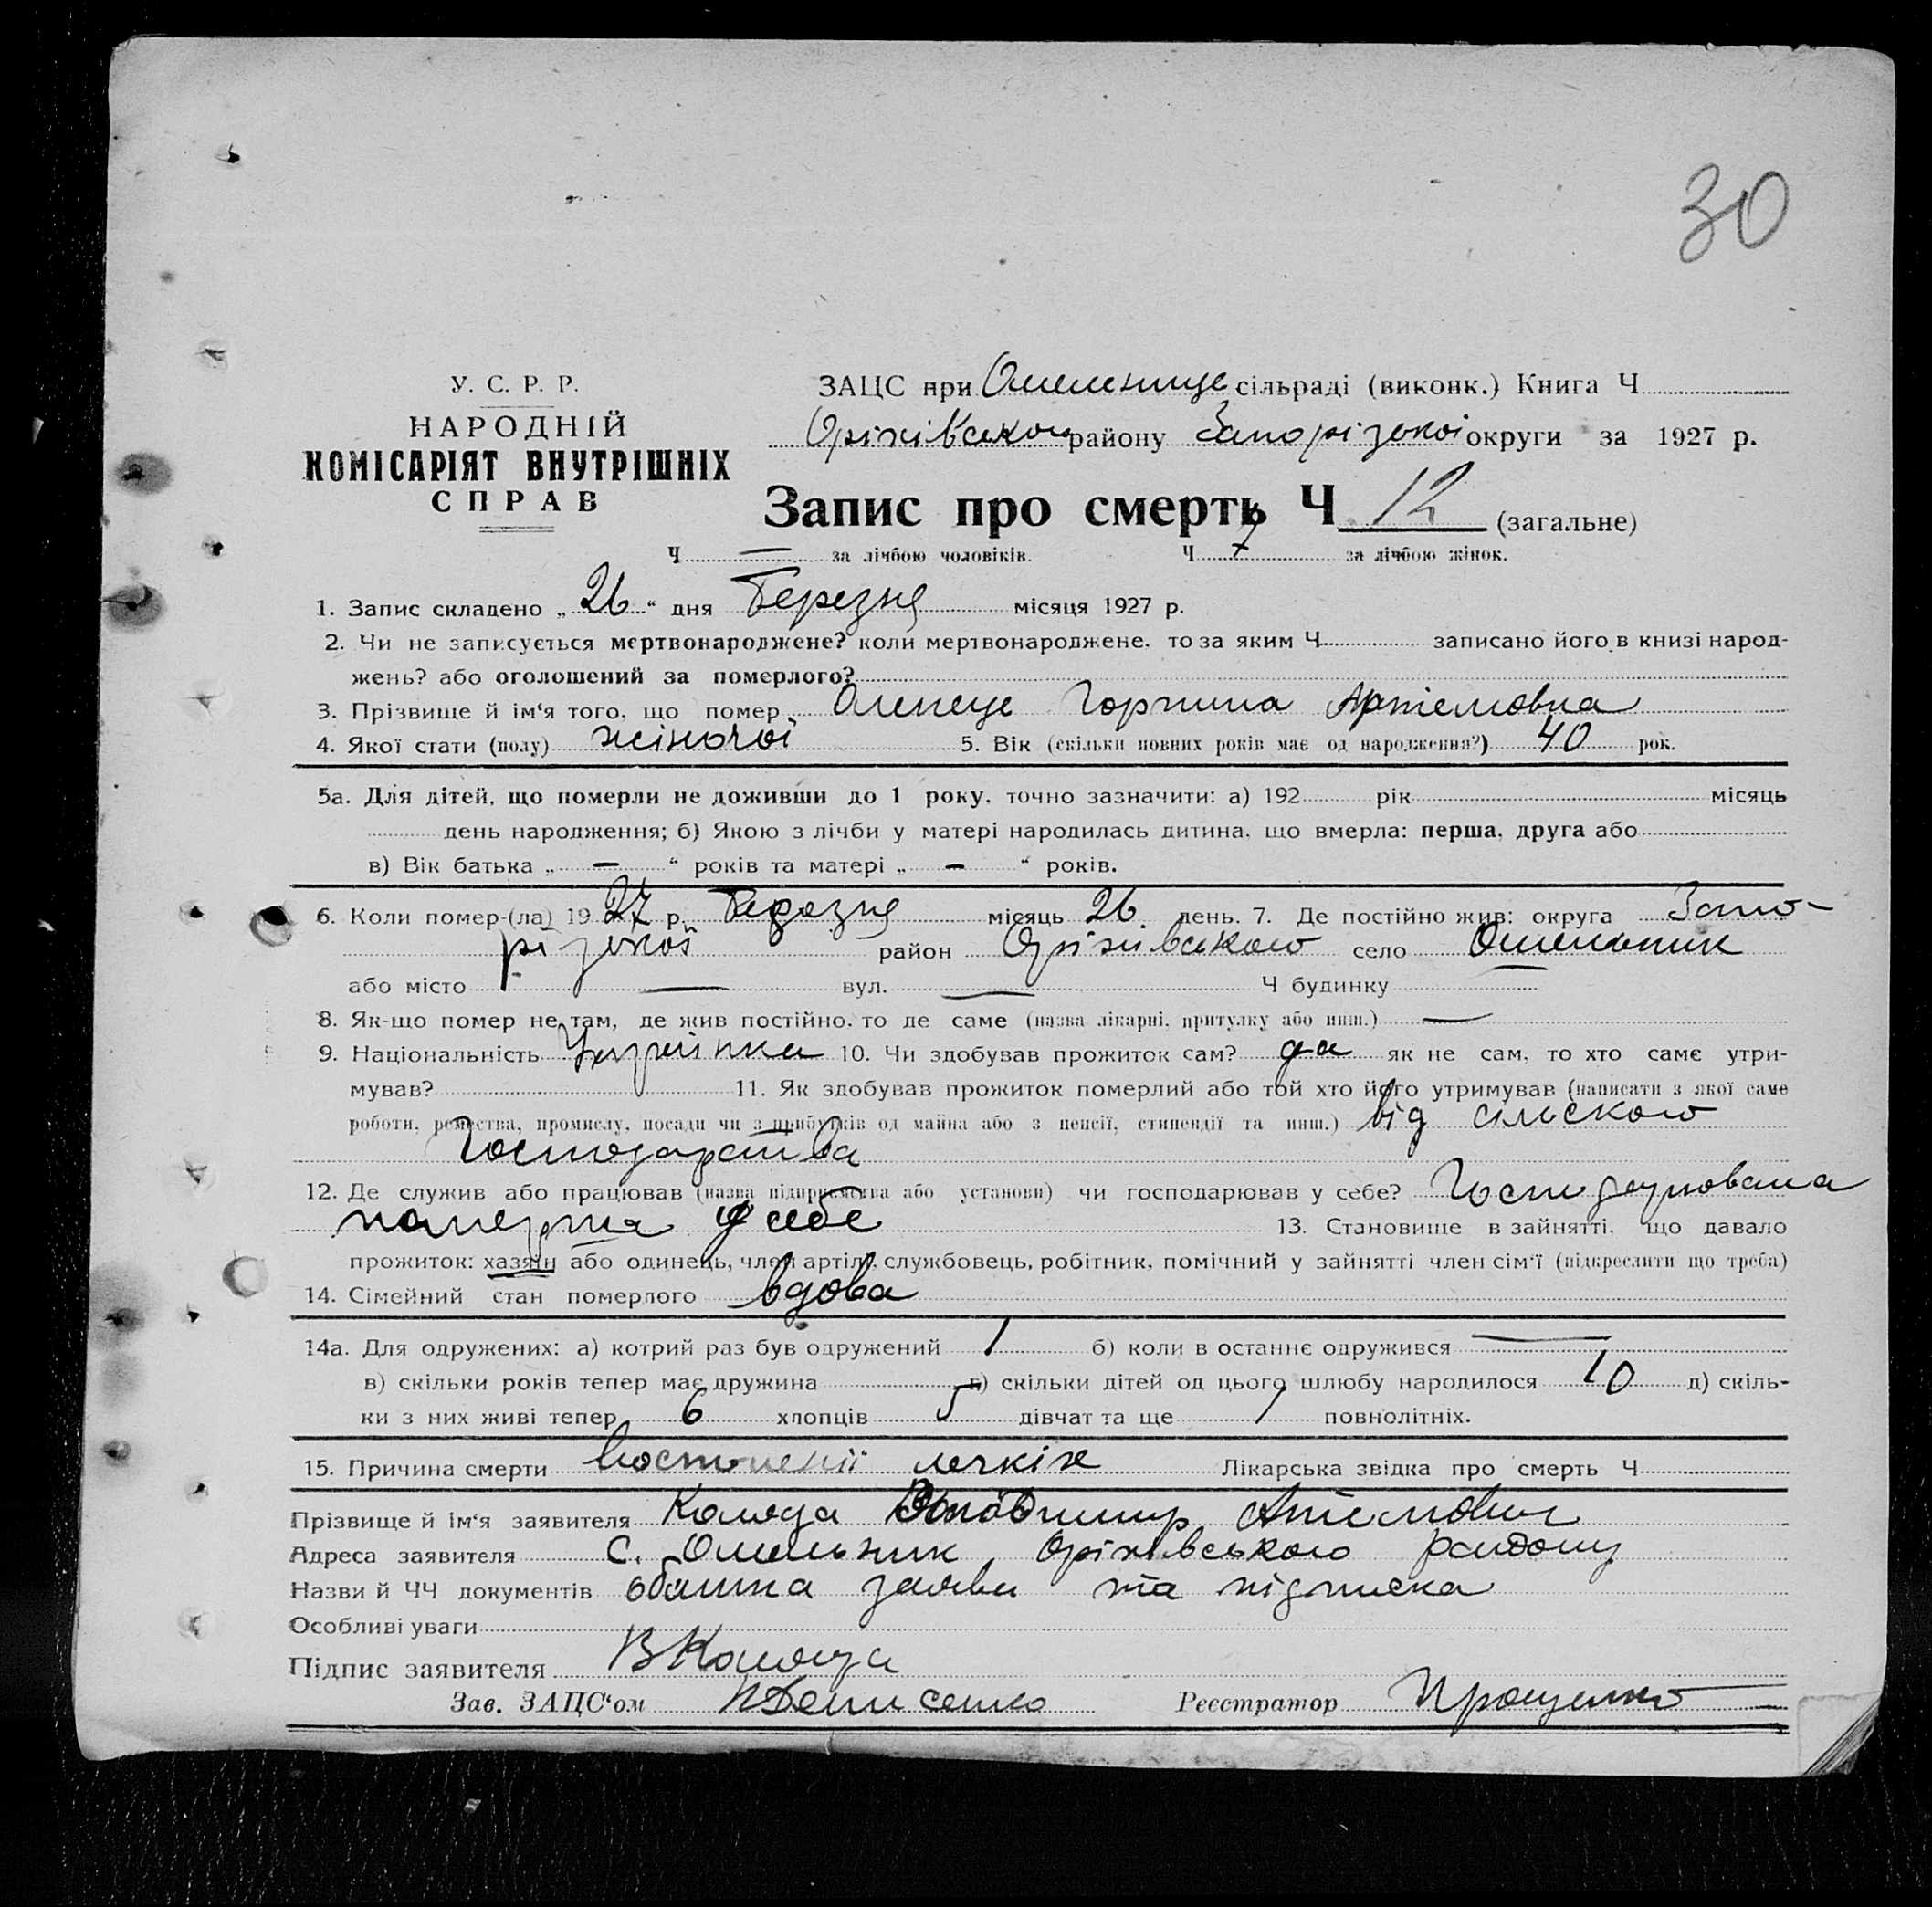 30
У. С. Р. Р.
НАРОДНІЙ
КОМІСАРІЯТ ВНУТРІШНІХ
СПРАВ
ЗАЦС при сільраді (виконк.) Книга Ч
Оріхівсько району Запорізької округи за 1927 р.
Запис про смерть Ч 12 (загальне)
Ч — за лічбою чоловіків. Ч 7 за лічбою жінок.
1. Запис складено „ 26 “ дня Березня місяця 1927 р.
2. Чи не записується мертвонароджене? коли мертвонароджене, то за яким Ч записано його в книзі народ-
жень? або оголошений за померлого?
3. Прізвище й ім‘я того, що помер Горпина Артемовна
4. Якої стати (полу) жіночої 5. Вік (скільки повних років має од народження?) 40 рок.
5а. Для дітей, що померли не доживши до 1 року, точно зазначити: а) 192 рік місяць
день народження; б) Якою з лічби у матері народилась дитина, що вмерла: перша, друга або
в) Вік батька „ — “ років та матері „ — “ років.
6. Коли помер-(ла) 1927 р. Березня місяць 26 день. 7. Де постійно жив: округа Запо-
різької район Оріхівського село Омельник
або місто — вул. — Ч будинку
8. Як-що помер не там, де жив постійно, то де саме (назва лікарні, притулку або инш.) —
9. Національність Українка 10. Чи здобував прожиток сам? да як не сам, то хто саме утри-
мував? 11. Як здобував прожиток померлий або той хто його утримував (написати з якої саме
роботи, ремества, промислу, посади чи з прибутків од майна або з пенсії, стипендії та инш.) від сільского
господарства
12. Де служив або працював (назва підприємства або установи) чи господарював у себе? Господарювала
померша у себе 13. Становище в зайнятті, що давало
прожиток: хазяїн або одинець, член артілі, службовець, робітник, помічний у зайнятті член сім‘ї (підкреслити що треба)
14. Сімейний стан померлого вдова
14а. Для одружених: а) котрий раз був одружений 1 б) коли в останнє одружився —
в) скільки років тепер має дружина г) скільки дітей од цього шлюбу народилося 10 д) скіль-
ки з них живі тепер 6 хлопців 5 дівчат та ще 1 повнолітніх.
15. Причина смерти легкіх Лікарська звідка про смерть Ч
Прізвище й ім‘я заявителя Володимир
Адреса заявителя с. Омельник, Оріхівського району
Назви й ЧЧ документів заява та підписка
Особливі уваги
Підпис заявителя
Зав. ЗАЦС‘ом Денисенко Реєстратор Проценко